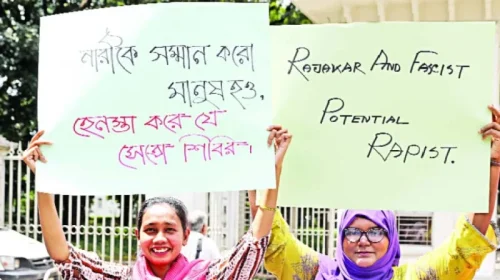 নারীকে সম্মান করো
মানুষ হও,
হেনস্তা করে যে
সেতো শিবির।
RAJAKAR AND FASCIST
POTENTIAL
RAPIST.